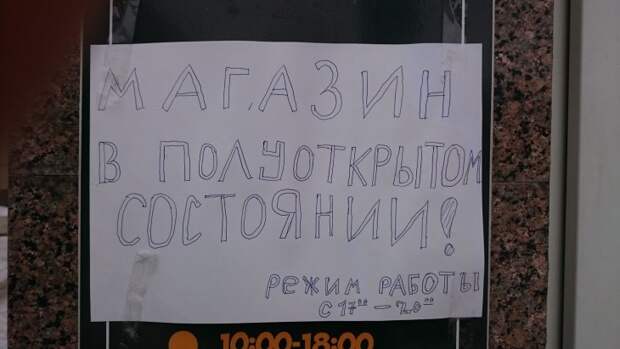 МАГАЗИН
В ПОЛУОТКРЫТОМ
СОСТОЯНИИ!
РЕЖИМ РАБОТЫ
С 17⁰⁰ – 20⁰⁰
10:00-18:00